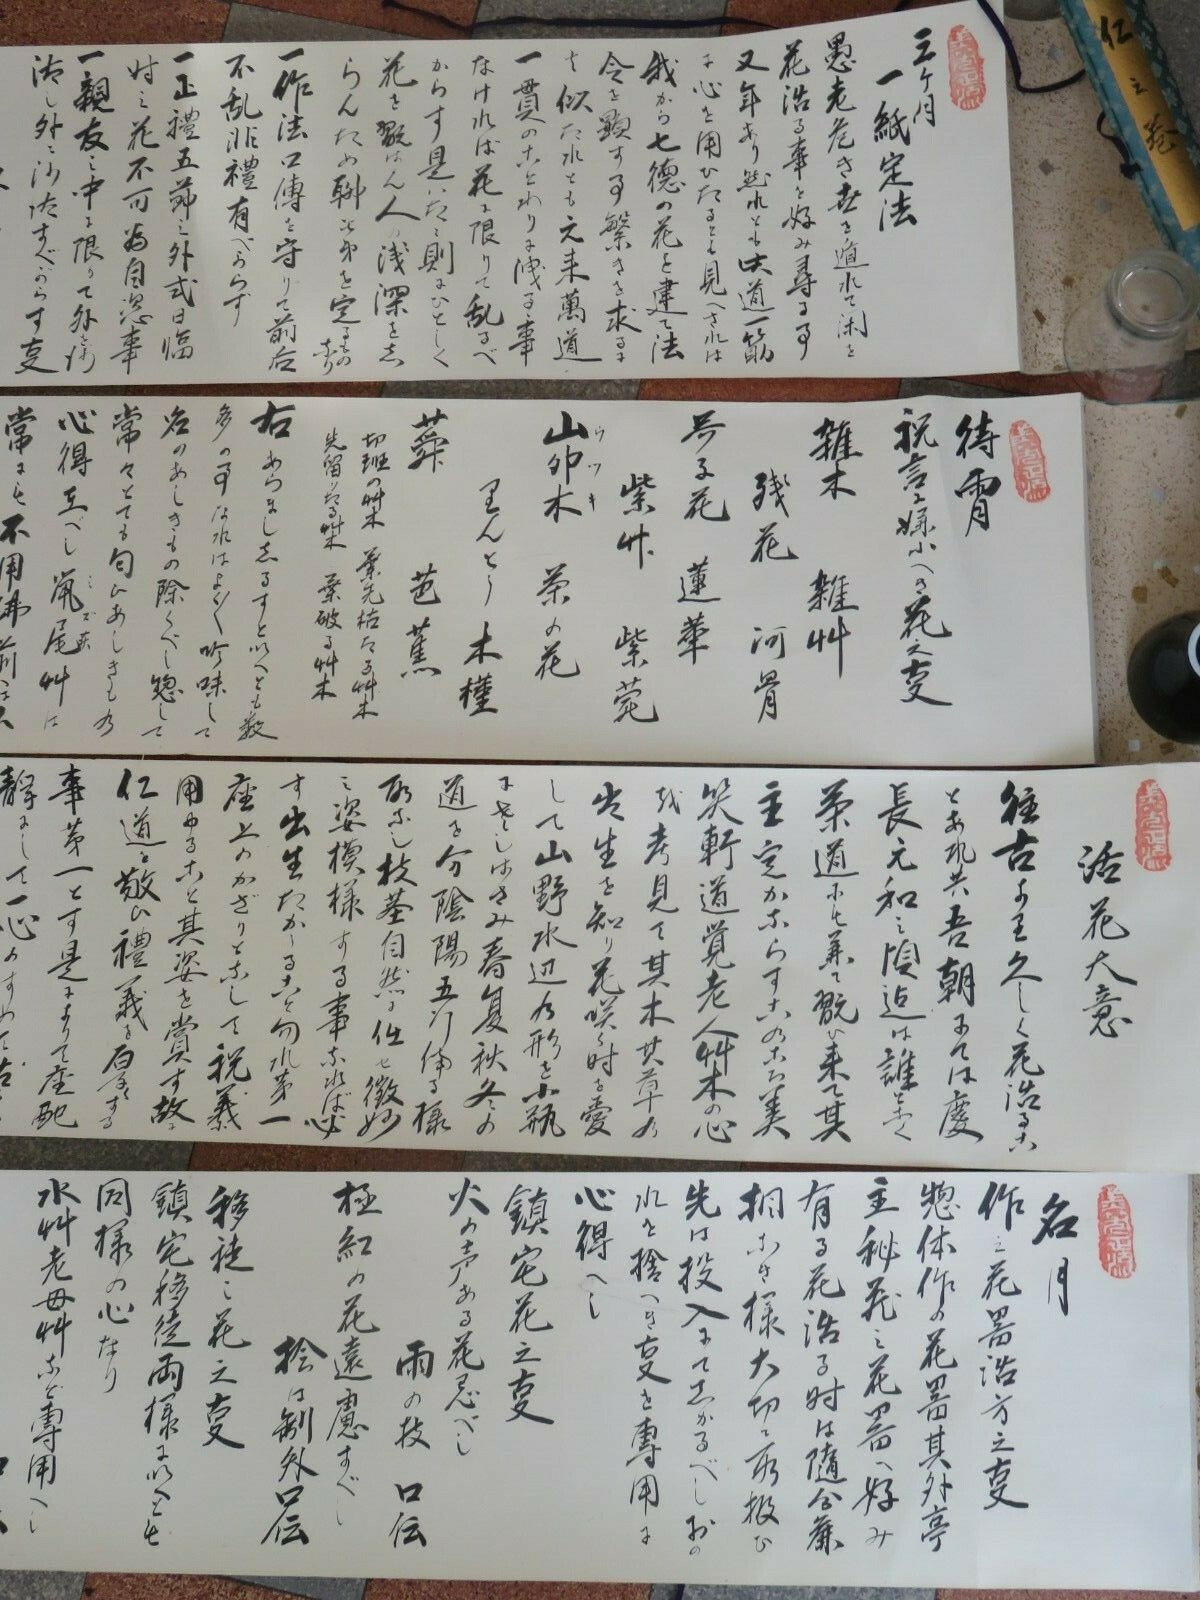 仁之巻
三ケ月
一紙定法
愚老危き世を遁れて閑を
花活る事を好み尋る事
又年あり然れとも此道一筋
に心を用ひたるとも見へされは
我から七徳の花を建て法
令を顕す事繁きを求るに
も似たれとも元来萬道
一貫のことわりに洩る事
なけれは花に限りて乱るべ
からす是いたい則にひとしく
花を翫はん人の浅深をし
らんため聊次第を定るもの
一作法口傳を守りて前后
不乱非禮有べからず
一正禮五節之外式日臨
時之花不可為自恣事
一親友之中に限りて外に
活し外之沙汰すべからす叓
待宵
祝言に嫌ふへき花之叓
雑木 雑艸
残花 河骨
蓮華
紫竹 紫苑
山卯木 茶の花
ウツキ
りんとう 木槿
蕣 芭蕉
切班の艸木 葉先枯たる艸木
先留たる艸木 葉破る艸木
右あらまししるすと以へとも数
多の事なれはよく〱吟味して
名のあしきもの除くべし惣して
常々とても匂ひあしきもの
心得立べし鼠尾艸は
常にも不用佛前には
活花大意
往古より久しく花活るこ
とあれ共吾朝にては慶
長元和之頃迄は誰とな
茶道にも兼て翫ひ来て其
主定かならすこのころ美
笑軒道覚老人艸木の心
を考見て其木其草の
出生を知り花咲く時を愛
して山野水辺の形を小瓶
にさしはさみ春夏秋冬の
道を分陰陽五行備る様
形ふし枝茎自然に任せ微妙
之姿模様する事なれば必
す出生たかへること勿れ第一
座上のかざりとして祝義
用ゆること其姿を賞す故に
仁道を敬ひ禮義を厚する
事第一とす是によりて座配
静にして一心のすゝめ
名月
作之花器活方之叓
惣体作の花器其外亭
主秘蔵之花器へ好み
有る花活る时は随分麁
相なき様大切に取扱ひ
先は投入にてしかるべしおの
れを捨へき叓を専用に
心得へし
鎮宅花之叓
火の声ある花忌べし
雨の枝 口伝
極紅の花遠慮すべし
桧は制外口伝
移徒之花之叓
鎮宅移徒両様に以へとも
同様の心なり
水艸老母艸など専用へし